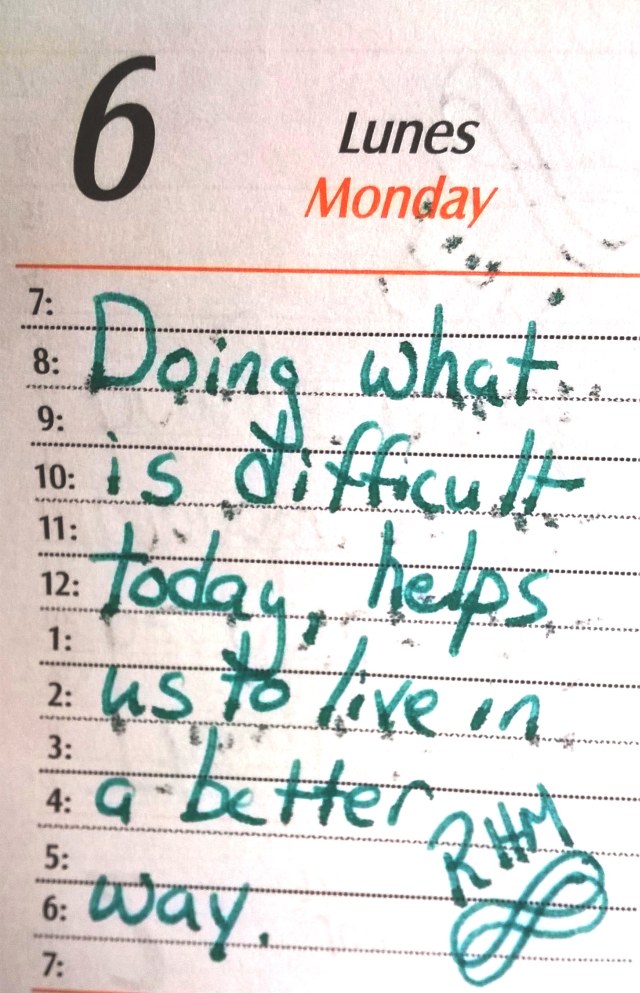 6
Lunes
Monday
7:
8: Doing what
9:
10: is difficult
11:
12: today, helps
1:
2: us to live in
3:
4: a better
RHM
5:
6: way.
7: